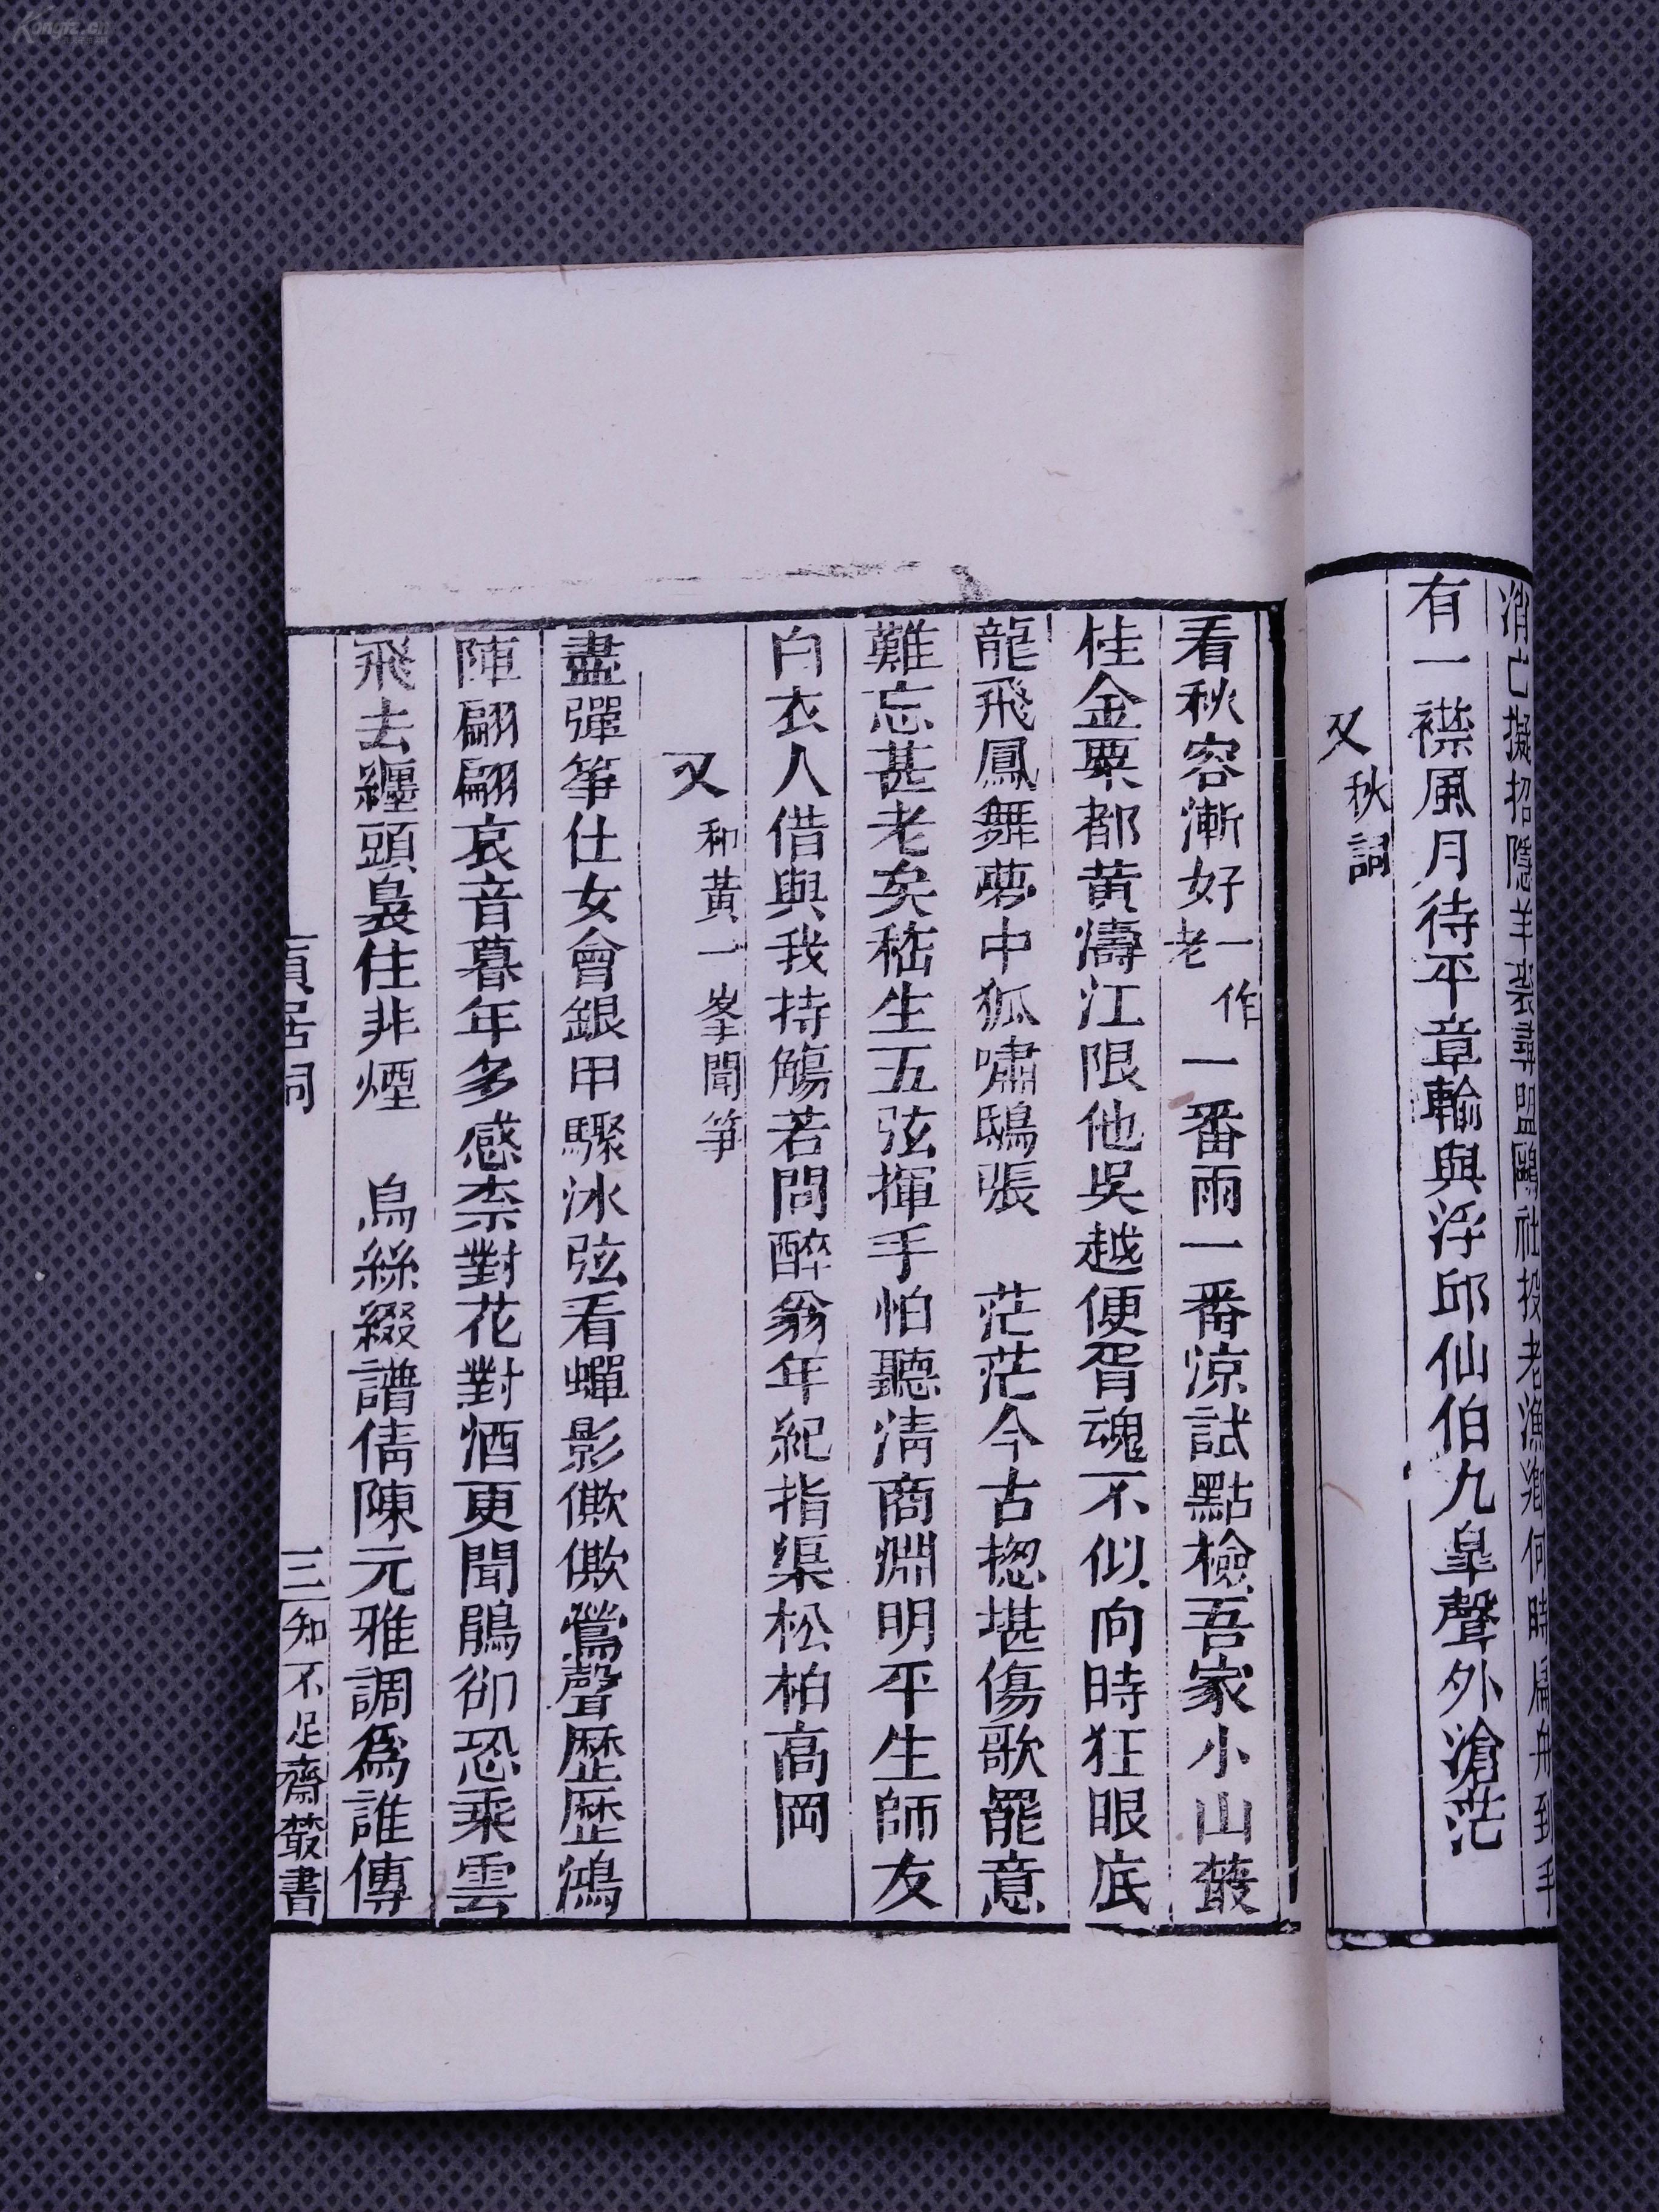 消亡擬招隱羊裘尋盟鷗社投老漁鄉何時扁舟到手
有一襟風月待平章輸與浮邱仙伯九皐聲外滄茫
又秋詞
看秋容漸好一作老一番雨一番涼試點檢吾家小山叢
桂金粟都黃濤江限他吳越便胥魂不似向時狂眼底
龍飛鳳舞夢中狐嘯鴟張 茫茫今古揔堪傷歌罷意
難忘甚老矣嵇生五弦揮手怕聽淸商淵明平生師友
白衣人借與我持觴若問醉翁年紀指渠松柏高岡
又和黃一峯聞筝
盡彈筝仕女會銀甲驟冰弦看蟬影僛僛鶯聲歷歷鴻
陣翩翩哀音暮年多感柰對花對酒更聞鵑卻恐乘雲
飛去纏頭裊住非煙 烏絲綴譜倩陳元雅調爲誰傳
貞居詞
三知不足齋叢書
Kongfz.cn